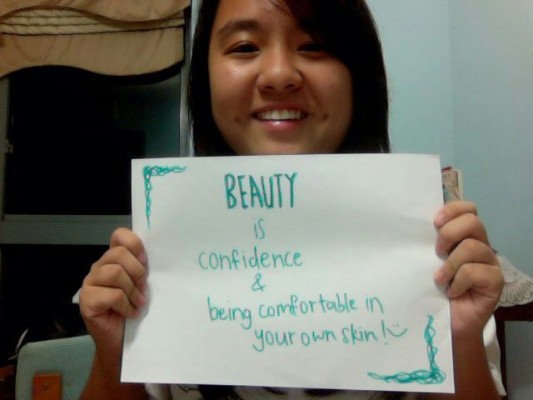 BEAUTY
is
confidence
&
being comfortable in
your own skin!